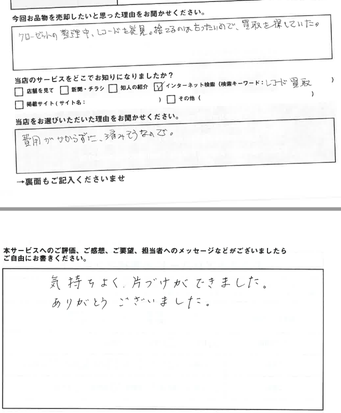 今回お品物を売却したいと思った理由をお聞かせください。
クローゼットの整理中、レコードを発見。捨てるのはもったいので、買取を探していた。
当店のサービスをどこでお知りになりましたか?
□店舗を見て □新聞・チラシ □知人の紹介 ☑インターネット検索（検索キーワード：レコード 買取 ）
□掲載サイト（サイト名： ） □その他（ ）
当店をお選びいただいた理由をお聞かせください。
費用がかからずに、済みそうなので。
→裏面もご記入くださいませ
本サービスへのご評価、ご感想、ご要望、担当者へのメッセージなどがございましたら
ご自由にお書きください。
気持ちよく、片づけができました。
ありがとうございました。